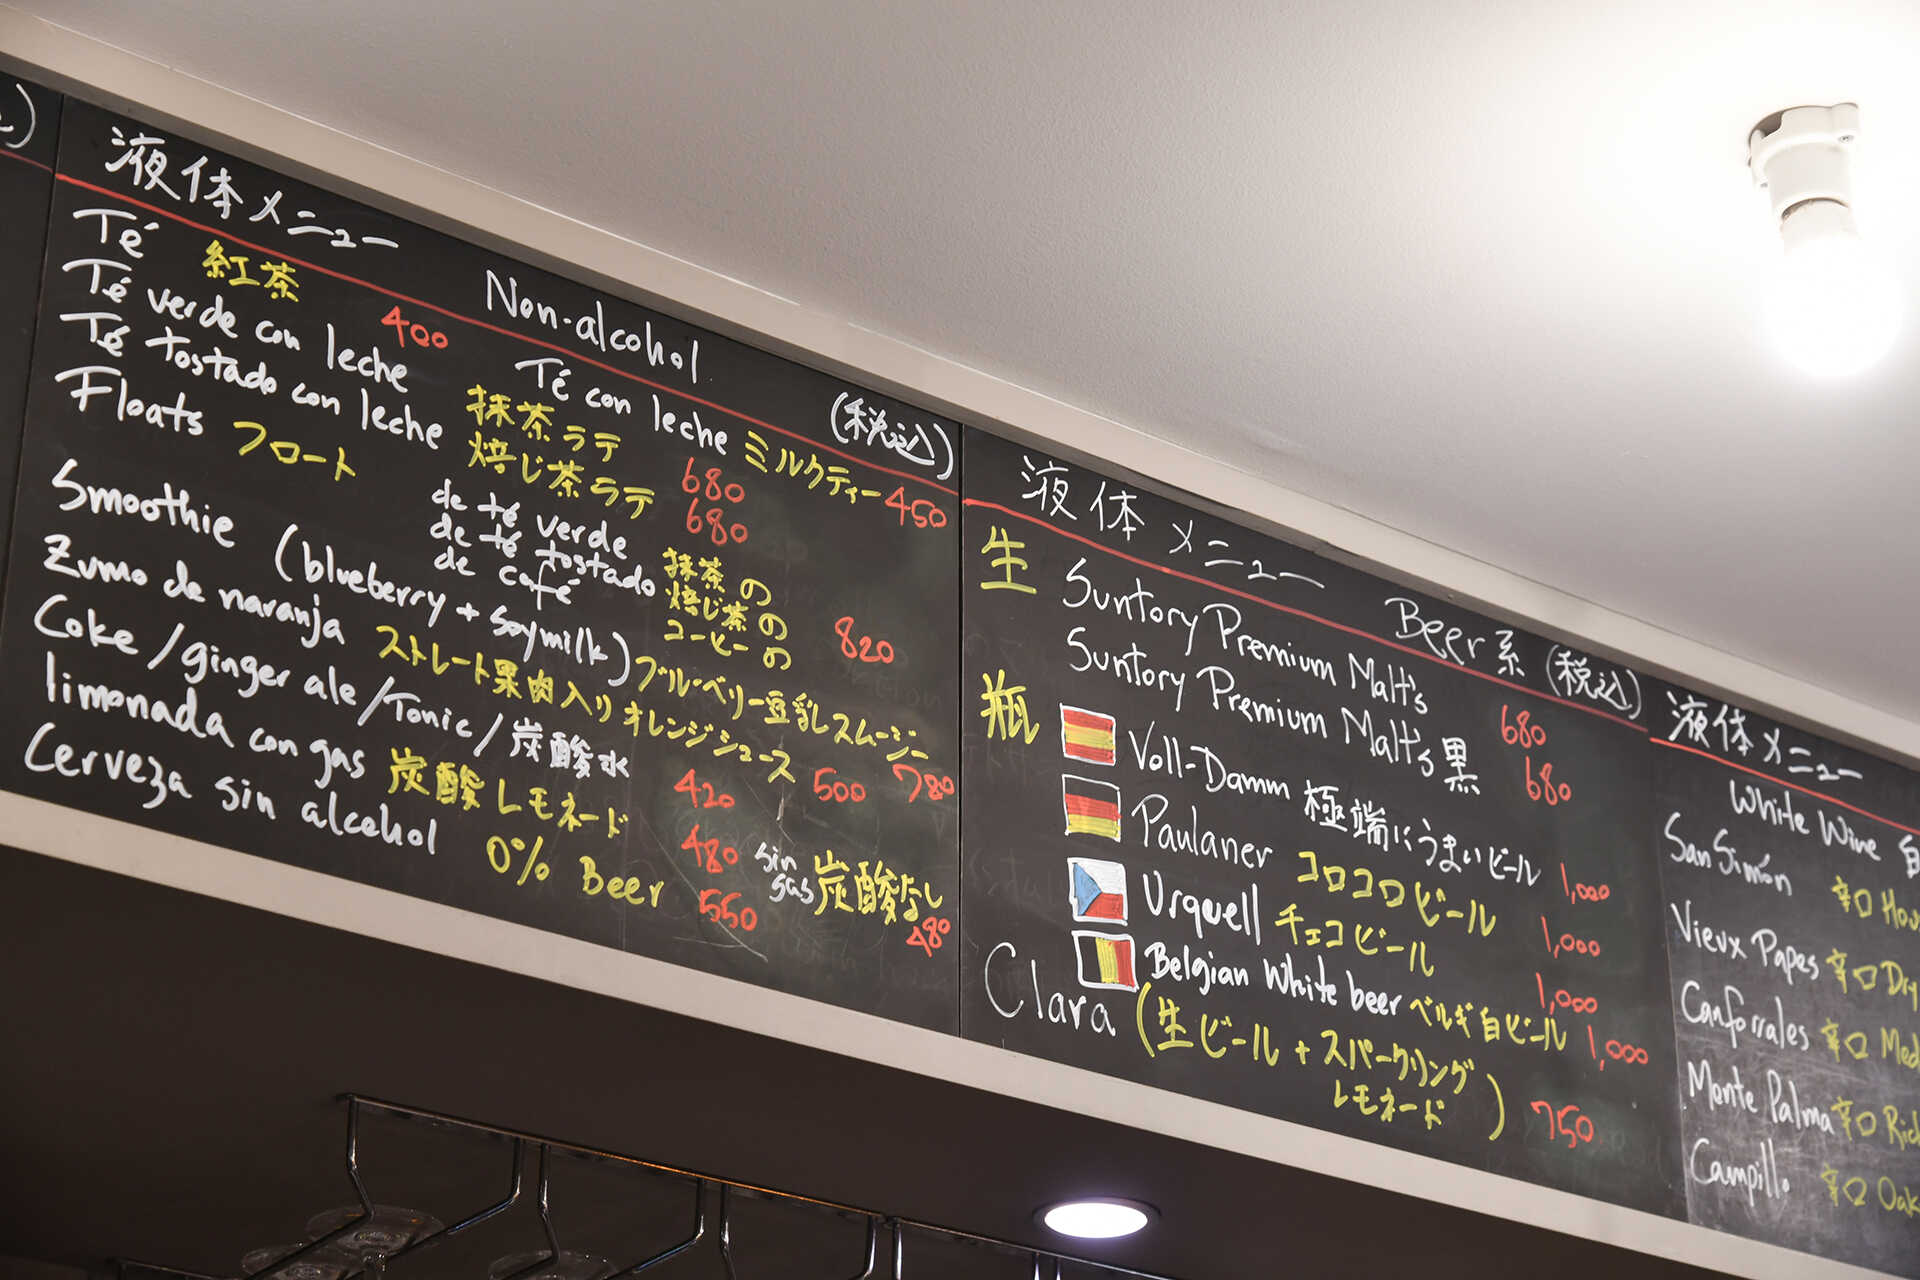 液体メニュー Non-alcohol (税込)
Té 紅茶 400 Té con leche ミルクティー 450
Té verde con leche 抹茶ラテ 680
Té tostado con leche 焙じ茶ラテ 680
Floats フロート
de té verde 抹茶の
de té tostado 焙じ茶の 820
de café コーヒーの
Smoothie (blueberry + soymilk) ブルーベリー豆乳スムージー 780
Zumo de naranja ストレート果肉入りオレンジジュース 500
Coke/ginger ale/Tonic/炭酸水 420
limonada con gas 炭酸レモネード 480 sin gas 炭酸なし 480
Cerveza sin alcohol 0% Beer 550
液体メニュー Beer系 (税込)
生 Suntory Premium Malt's 680
Suntory Premium Malt's 黒 680
瓶 Voll-Damm 極端にうまいビール 1,000
Paulaner コロコロビール 1,000
Urquell チェコビール 1,000
Belgian White beer ベルギ白ビール 1,000
Clara (生ビール + スパークリング
レモネード) 750
液体メニュー
White Wine
San Simón 辛口
Vieux Papes 辛口 Dry
Canforrales 辛口 Med
Monte Palma 辛口 Rich
Campillo 辛口 Oak